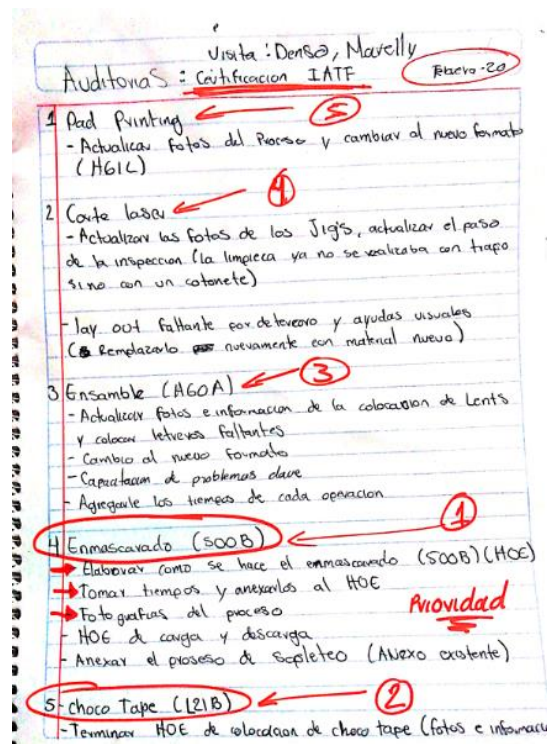 Visita: Denso, Mavelly
Auditorias: Certificacion IATF
Febrero-20
1 Pad Printing 5
- Actualicar Fotos del Proceso y cambiar al nuevo formato
(H61L)
2 Corte laser 4
- Actualizar las fotos de los Jig's, actualizar el paso
de la inspeccion (la limpieca ya no se realizaba con trapo
sino con un cotonete)
- lay out faltante por deterioro y ayudas visuales
( Remplazarlo nuevamente con material nuevo)
3 Ensamble (H60A) 3
- Actualicar fotos e informacion de la colocacion de Lents
y colocar letreros faltantes
- Cambio al nuevo formato
- Capacitacion de problemas clave
- Agregarle los tiempos de cada operacion
4 Enmascarado (500B) 1
Elaborar como se hace el enmascarado (500B) (HOE)
Tomar tiempos y anexarlos al HOE
Fotografias del proceso Prioridad
- HOE de carga y descarga
- Anexar el proseso de Sopleteo (ANexo existente)
5- Choco Tape (L21B) 2
- Terminar HOE de colocacion de choco tape (fotos e